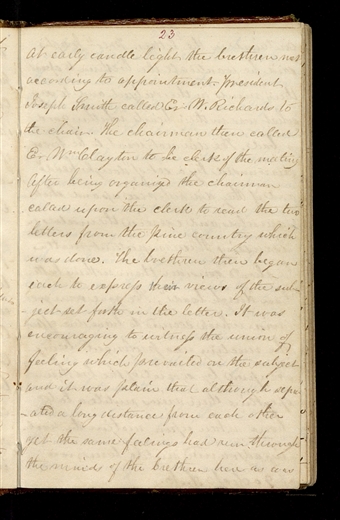 23
At early candle light the brethren met
according to appointment. President
Joseph Smith called Er. W. Richards to
the chair. The chairman then called
Er. Wm Clayton to be clerk of the meeting
After being organized the chairman
called upon the clerk to read the two
letters from the Pine country which
was done. The brethren then began
each to express their views of the sub
-ject set forth in the letter. It was
encouraging to witness the union of
feeling which prevailed on the subject
and it was plain that although sepe
-rated a long distance from each other
yet the same feelings had run through
the minds of the brethren here as was